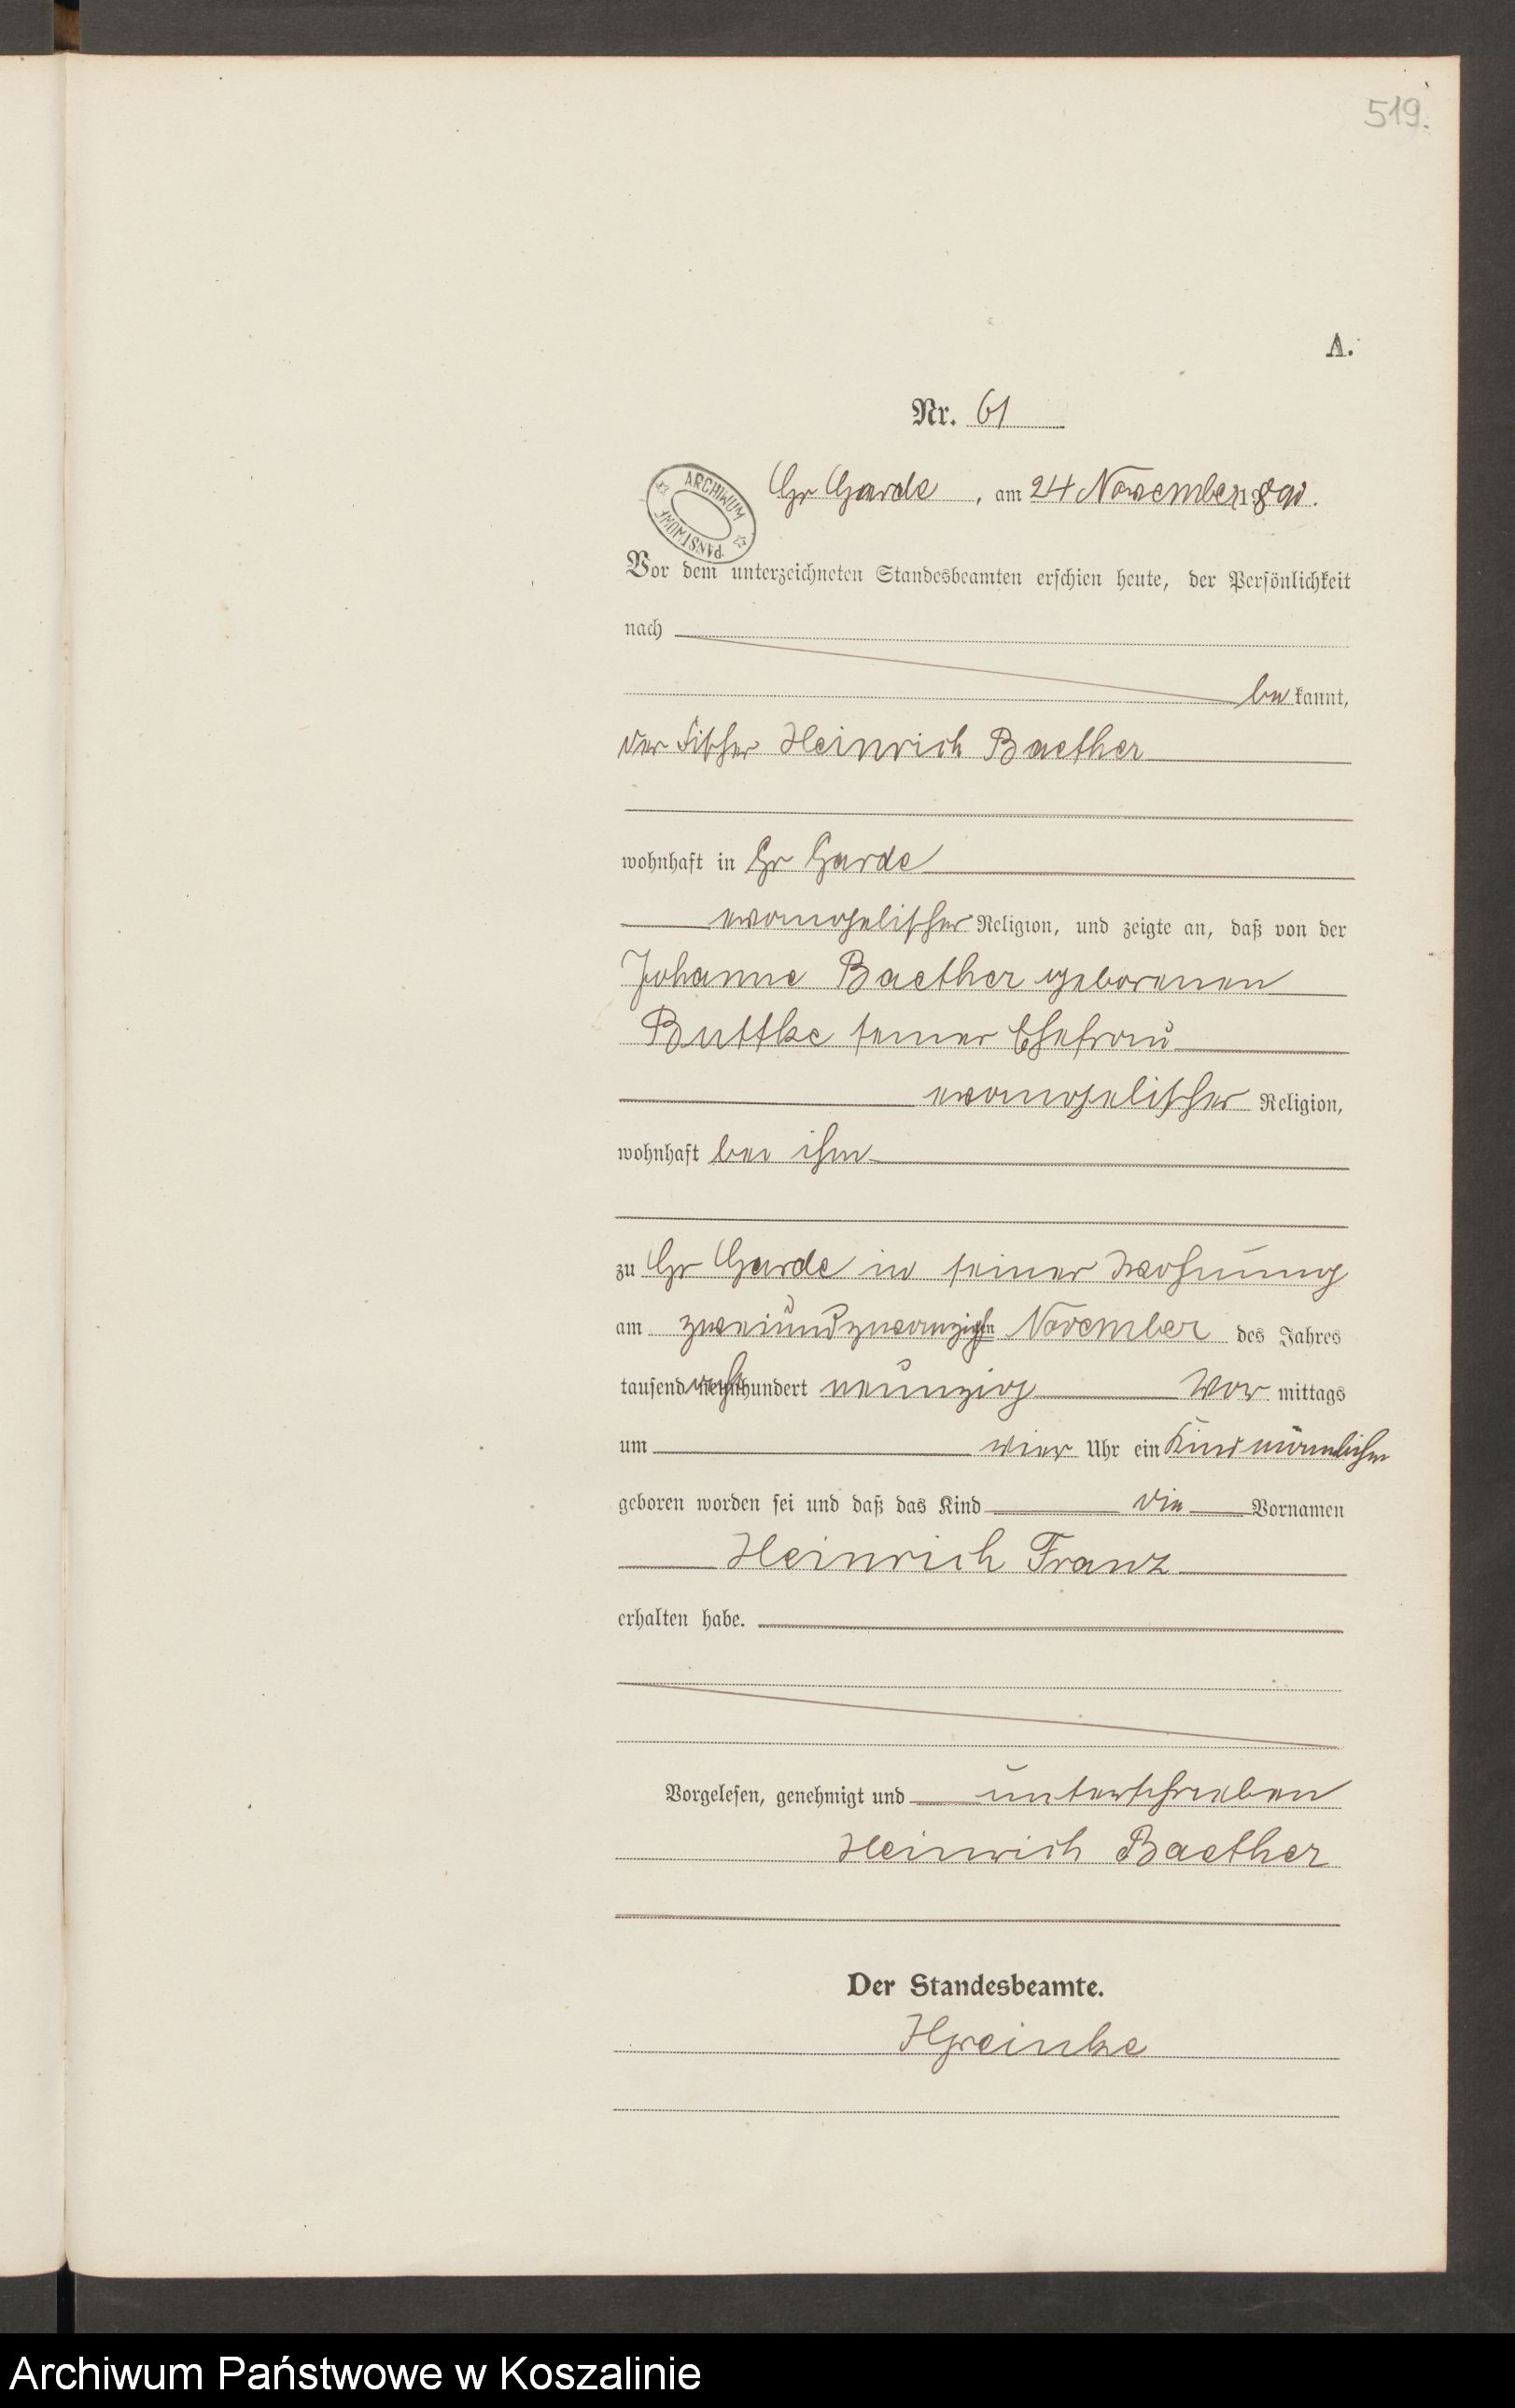 519.
A.
Nr. 61
ARCHIWUM PAŃSTWOWE
Gr Garde, am 24 November 1890.
Vor dem unterzeichneten Standesbeamten erschien heute, der Persönlichkeit
nach
be kannt,
der Fischer Heinrich Baether
wohnhaft in Gr Garde
evangelischer Religion, und zeigte an, daß von der
Johanne Baether geborenen
Buttke seiner Ehefrau
evangelischer Religion,
wohnhaft bei ihm
zu Gr Garde in seiner Wohnung
am zweiundzwanzigsten November des Jahres
tausend achthundert neunzig Vor mittags
um vier Uhr ein Kind männlichen
geboren worden sei und daß das Kind die Vornamen
Heinrich Franz
erhalten habe.
Vorgelesen, genehmigt und unterschrieben
Heinrich Baether
Der Standesbeamte.
HGreinke
Archiwum Państwowe w Koszalinie